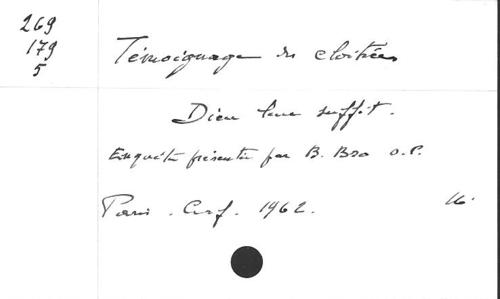 269
179
5
Témoignage des cloîtrées
Dieu leur suffit.
Enquête présentée par B. Bro o.p.
Paris. Cerf. 1962. 16.